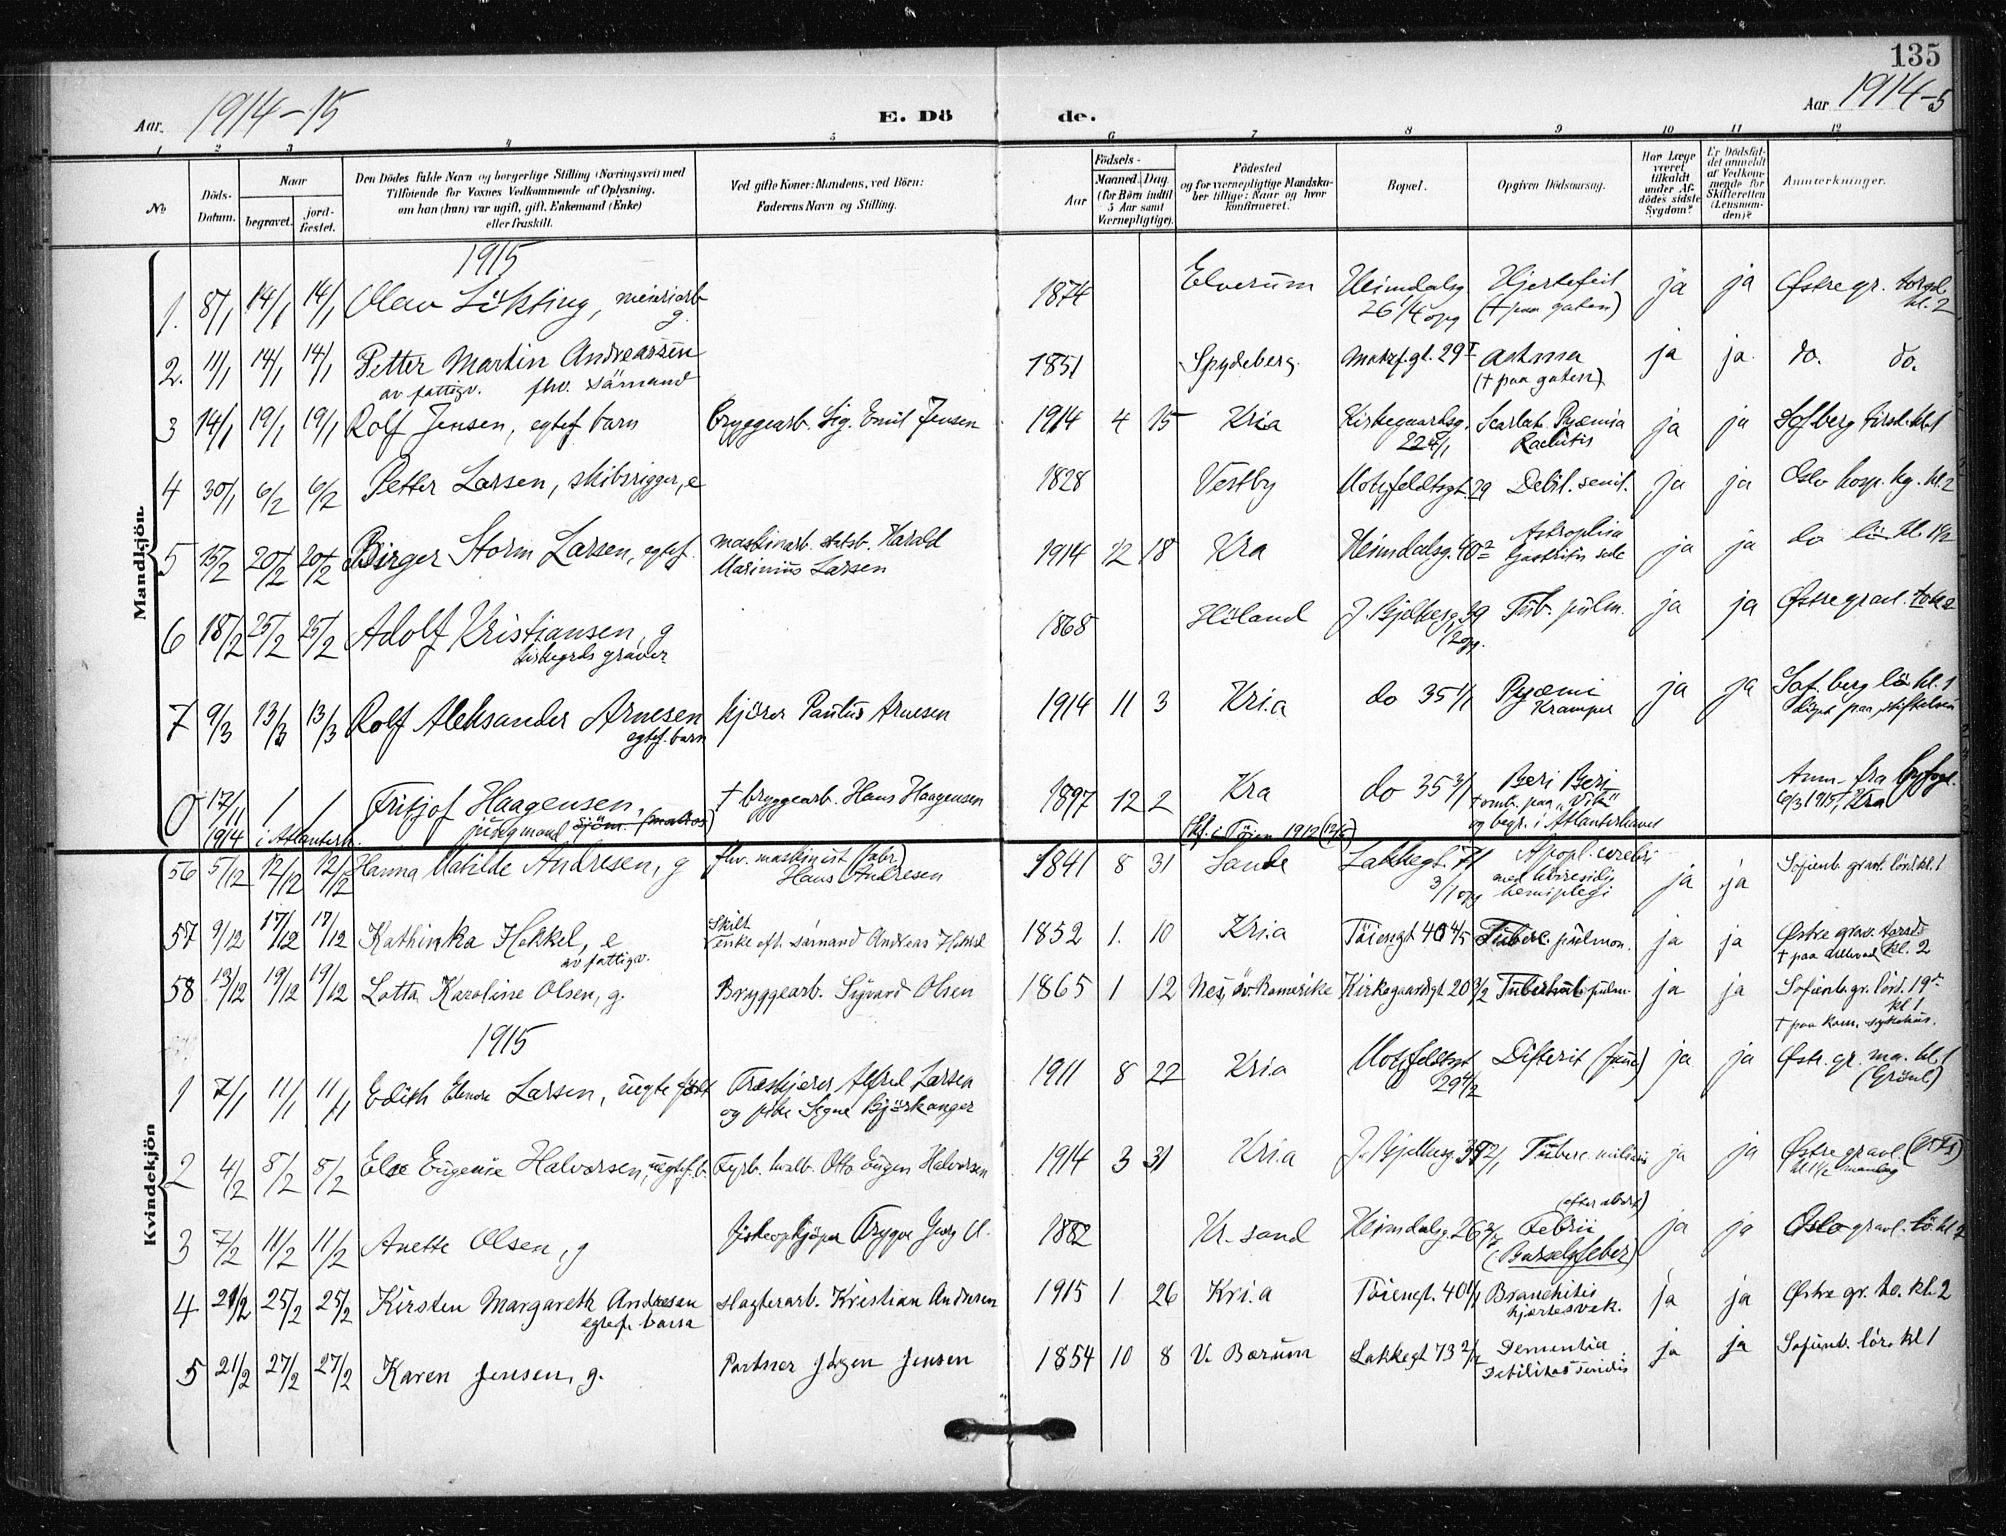 135
Aar. 1914-15 E. Dö de. Aar 1914-5
1 2 3 4 5 6 7 8 9 10 11 12
No. Döds-Datum. Naar begravet. jord-fæstet. Den Dödes fulde Navn og borgerlige Stilling (Næringsvei) med Tilföiende for Voxnes Vedkommende af Oplysning, om han (hun) var ugift, gift, Enkemand (Enke) eller fraskilt. Ved gifte Koner: Mandens, ved Börn: Faderens Navn og Stilling. Aar Födsels- Maaned. Dag. (for Börn indtil 5 Aar samt Værnepligtige). Födested og for værnepligtige Mandskaber tillige: Naar og hvor konfirmeret. Bopæl. Opgiven Dödsaarsag. Har Læge været tilkaldt under Afdödes sidste Sygdom? Er Dödsfaldet anmeldt af Vedkommende for Skifteretten (Lensmanden)? Anmærkninger.
Mandkjön.
1915
1. 8/1 14/1 14/1 Olav meieriarb g. 1874 Elverum Heimdalsg 26 1/4 opg Hjertefeil (+ paa gaten) ja ja Østre gr. torsd. kl. 2
2. 11/1 14/1 14/1 Petter Martin Andreassen av fattigv. fhv. sömand 1851 Spydeberg. Motzf.gt. 29 I astma (+ paa gaten) ja ja do. do.
3 14/1 19/1 19/1 Rolf Jensen, egtef barn bryggearb. Sig. Emil Jensen 1914 4 15 Kria Kirkegaardsg. 22 4/1 Scarlat. Pyæmia Rachitis ja ja Sofberg tirsd. kl 1
4 30/1 6/2 6/2 Petter Larsen, skibsrigger, e 1828 Vestby Motzfeldtsgt. 29 Debil. senil. ja ja Oslo hosp. kg. kl. 2
5 15/2 20/2 20/2 Birger Storm Larsen, egtef. maskinarb. statsb. Harald Marinius Larsen 1914 12 18 Kra Heimdalsg. 40 2 Gastritis ja ja do lö kl. 1 1/2
6 18/2 25/2 25/2 Adolf Kristiansen, g kirkegrds graver 1868 Höland J. Bjelkesg. 39 1/2 opg. Tub. pulm. ja ja Østre gravl. to kl 2
7 9/3 13/3 13/3 Rolf Aleksander Arnesen egtef. barn kjörer Paulus Arnesen 1914 11 3 Kria do 35 1/1 Pyæmi Kramper ja ja Sof. berg lö kl. 1 döpt paa stiftelsen
0 17/11 1914 / / i Atlanterh. Fritjof Haagensen, jungmand sjöm. (matros) + bryggearb. Hans Haagensen 1897 12 2 Kra (kf. i Töien 1912) do 35 3/1 Beri Beri + omb. paa "Vik" og begr. i Atlanterhavet Anm. fra byfogd. 6/3 1915, Kra
Kvindekjön
56 5/12 12/12 12/12 Hanna Matilde Andresen, g fhv. maskinist (fabr) Hans Andresen 1841 8 31 Sande Lakkegt. 71 3/1 opg Apopl. cerebri med hemiplegi ja ja Sofienb. gravl. lörd. kl. 1
57 9/12 17/12 17/12 Kathinka Hekkel, e av fattigv. Skilt enke eft. sömand Andreas Hekkel 1852 1. 10 Kria Töiengt 40 4/5 Tuberc. pulmon. ja ja Østre grav. torsd. kl. 2
58 13/12 19/12 19/12 Lotta Karoline Olsen, g. Bryggearb. Sigvard Olsen 1865 1 12 Nes, öv. Romerike Kirkegaardsgt 20 3/2 Tuberkul. pulm. ja ja Sofienb. gr. lörd. 19 kl 1 + paa kom. sykehus.
1915
1 7/1 11/1 11/1 Edith Elenore Larsen, uegte födt Træskjærer Alfred Larsen og pike Signe Björkanger 1911 8 22 Kria Motzfeldtsgt 29 4/2 Difterit ja ja Østr. gr. ma. kl. 1 (Grönl)
2 4/2 8/2 8/2 Else Eugenie Halvorsen, uegtef. b. Fyrb. Otto Eugen Halvorsen 1914 3 31 Kria J. Bjelkesg. 39 2/1 Tuberc. miliaris ja ja Østre gravl. kl 1 1/2 mandag
3 7/2 11/2 11/2 Anette Olsen, g fiskeopkjöper Trygve Georg O. 1882 Kr. sand Heimdalsg. 26 3/4 (efter abort) Febris (Barselfeber) ja ja Oslo gravl. lö kl 2
4 21/2 25/2 25/2 Kirsten Margareth Andresen egtef. barn slagterarb. Kristian Andresen 1915 1 26 Kria Töiengt. 40 1/1 Bronchitis hjertesvak. ja ja Østre gr. to. kl. 2
5 21/2 27/2 27/2 Karen Jensen, g. Portner Jörgen Jensen 1854 10 8 V. Bærum Lakkegt 73 2/2 Dementia Debilitas senilis ja ja Sofienb. lör. kl 1